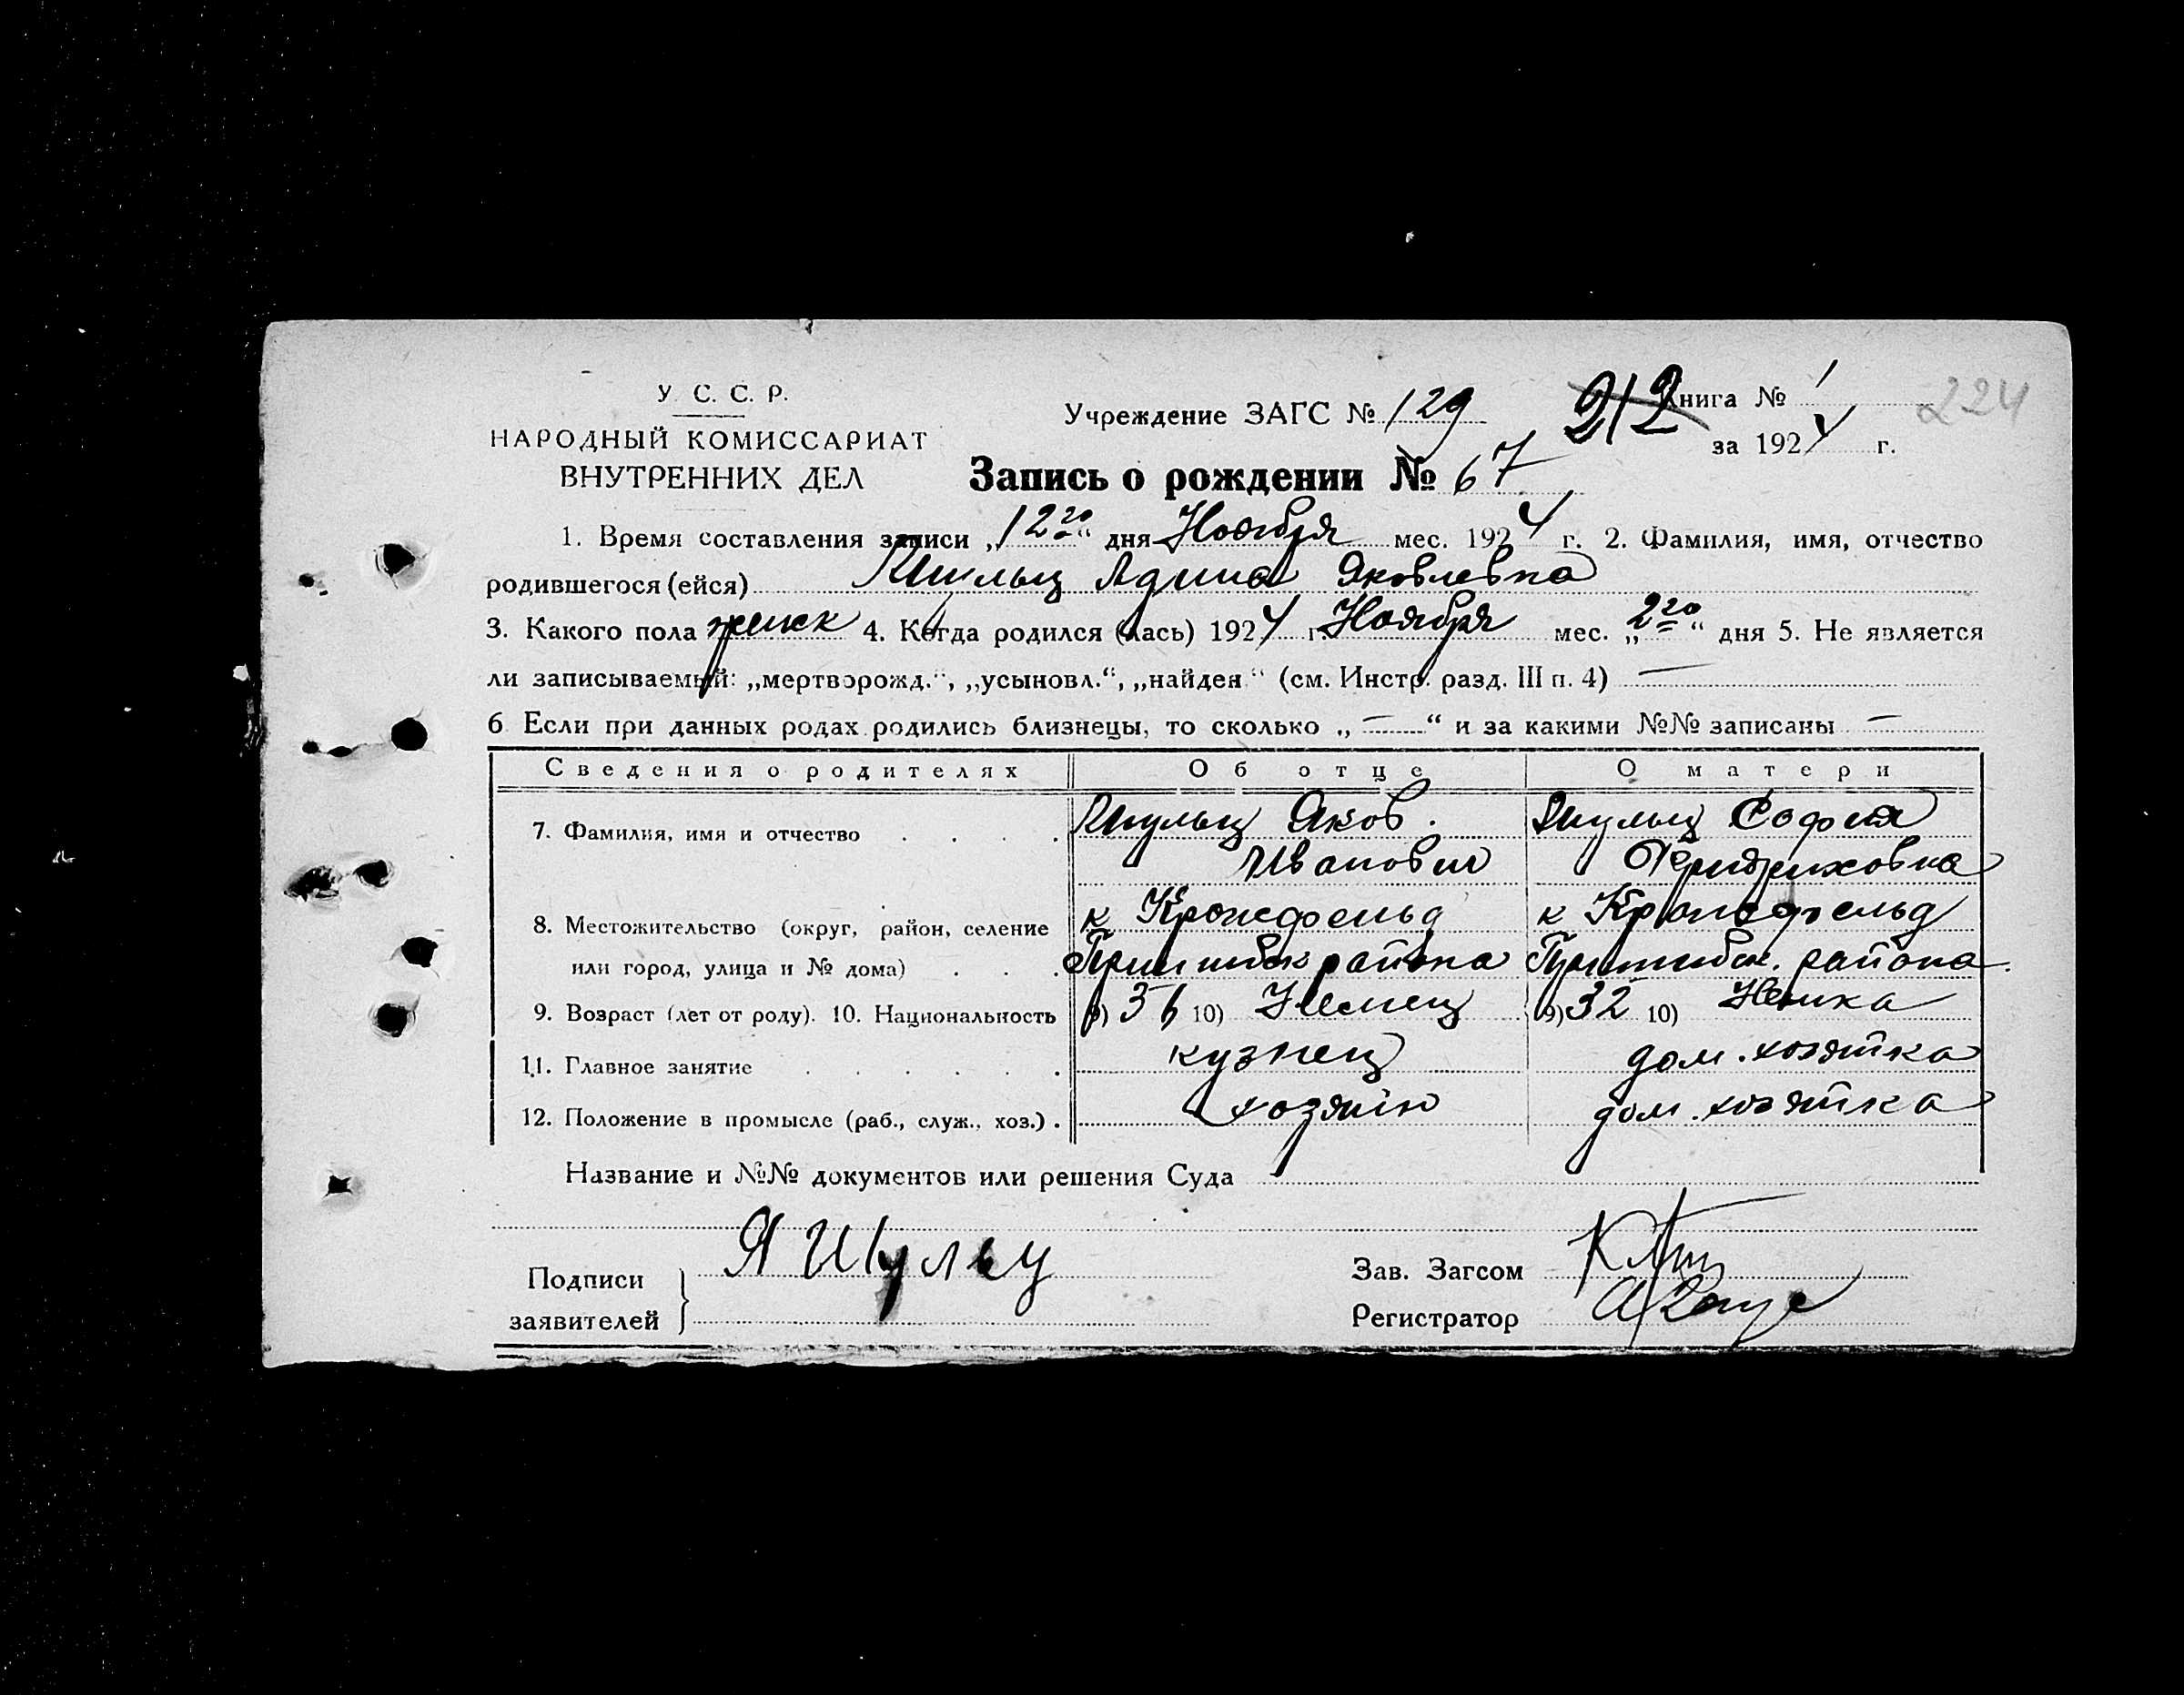 У. С. С. Р.
НАРОДНЫЙ КОМИССАРИАТ
ВНУТРЕННИХ ДЕЛ
Учреждение ЗАГС № 129
212
Книга № 1
224
за 1924 г.
Запись о рождении № 67
1. Время составления записи „12го“ дня Ноября мес. 1924 г. 2. Фамилия, имя, отчество
родившегося (ейся) Шульц Адина Яковлевна
3. Какого пола женск 4. Когда родился (лась) 1924 г. Ноября мес. „2го“ дня 5. Не является
ли записываемый: „мертворожд.“, „усыновл.“, „найден.“ (см. Инстр. разд. III п. 4) —
6 Если при данных родах родились близнецы, то сколько „—“ и за какими №№ записаны —
Сведения о родителях Об отце О матери
7. Фамилия, имя и отчество . . . . Шульц Яков. Шульц София
Иванович Фридриховна
8. Местожительство (округ, район, селение к Кронсфельд к Кронсфельд
или город, улица и № дома) . . . Пришибск района Пришибск. района.
9. Возраст (лет от роду). 10. Национальность 9) 36 10) Немец 9) 32 10) Немка
11. Главное занятие . . . . . . кузнец дом. хозяйка
12. Положение в промысле (раб., служ., хоз.) . хозяин дом. хозяйка
Название и №№ документов или решения Суда
Подписи
заявителей
Я Шульц
Зав. Загсом
Регистратор